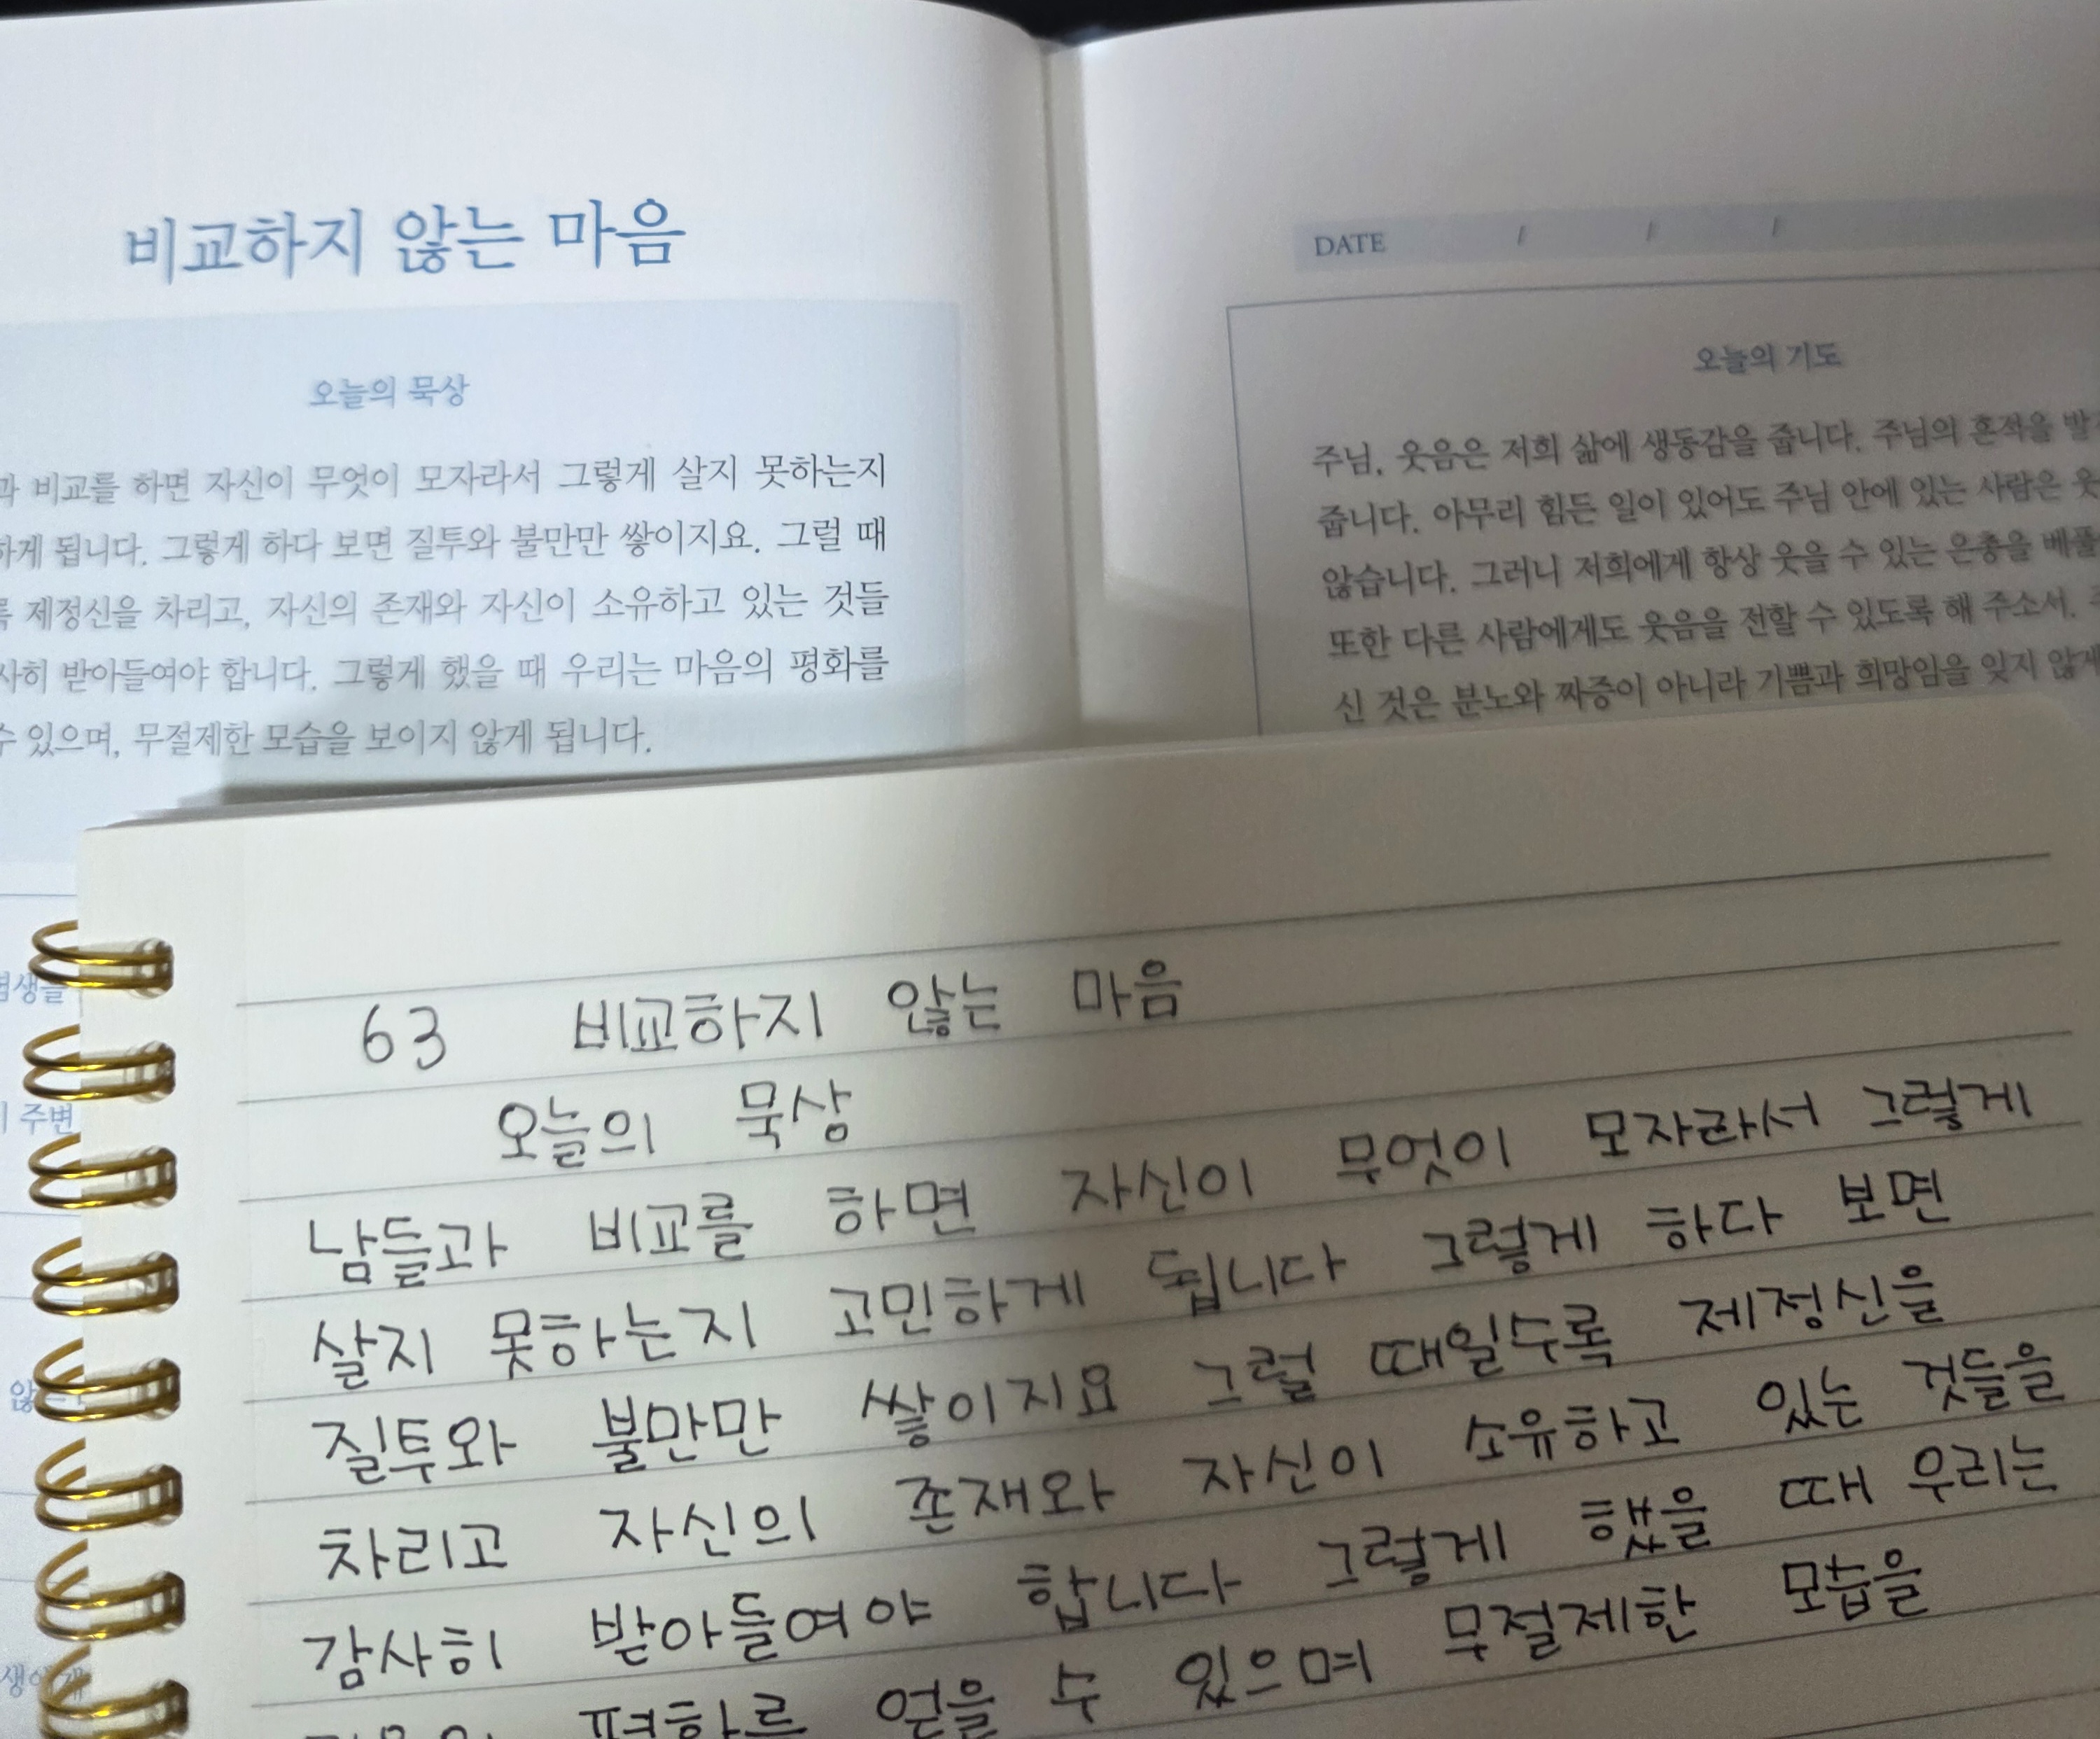 비교하지 않는 마음
오늘의 묵상
과 비교를 하면 자신이 무엇이 모자라서 그렇게 살지 못하는지
하게 됩니다. 그렇게 하다 보면 질투와 불만만 쌓이지요. 그럴 때
록 제정신을 차리고, 자신의 존재와 자신이 소유하고 있는 것들
사히 받아들여야 합니다. 그렇게 했을 때 우리는 마음의 평화를
수 있으며, 무절제한 모습을 보이지 않게 됩니다.
주변
DATE / / /
오늘의 기도
주님, 웃음은 저희 삶에 생동감을 줍니다. 주님의 흔적을
줍니다. 아무리 힘든 일이 있어도 주님 안에 있는 사람은
않습니다. 그러니 저희에게 항상 웃을 수 있는 은총을
또한 다른 사람에게도 웃음을 전할 수 있도록 해 주소서.
신 것은 분노와 짜증이 아니라 기쁨과 희망임을 잊지 않게
63 비교하지 않는 마음
오늘의 묵상
남들과 비교를 하면 자신이 무엇이 모자라서 그렇게
살지 못하는지 고민하게 됩니다 그렇게 하다 보면
질투와 불만만 쌓이지요 그럴 때일수록 제정신을
차리고 자신의 존재와 자신이 소유하고 있는 것들을
감사히 받아들여야 합니다 그렇게 했을 때 우리는
평화를 얻을 수 있으며 무절제한 모습을